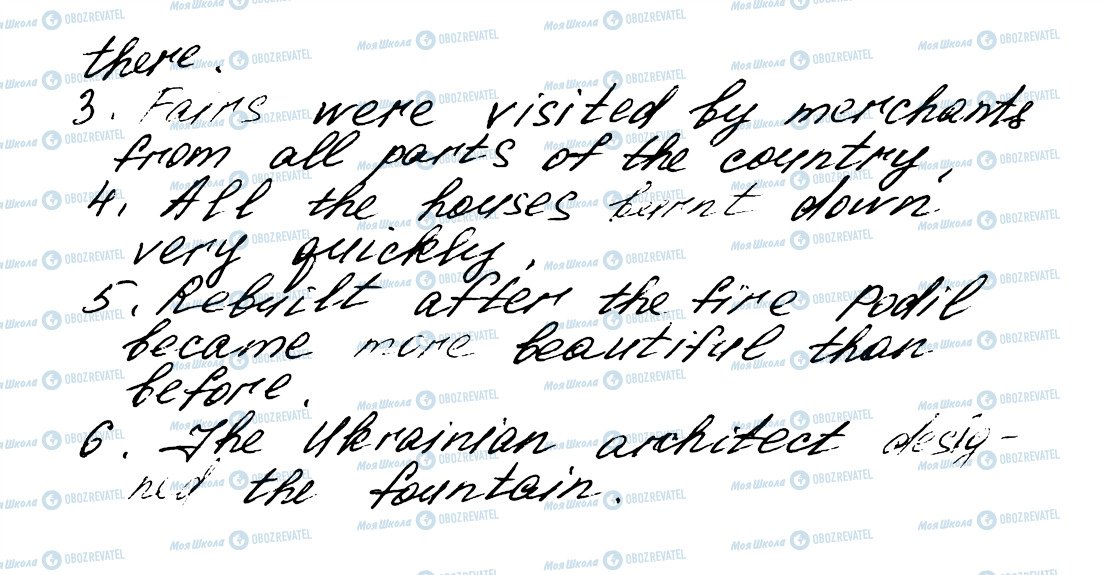 there.
3. Fairs were visited by merchants
from all parts of the country.
4. All the houses burnt down
very quickly.
5. Rebuilt after the fire Podil
became more beautiful than
before.
6. The Ukrainian architect desig-
ned the fountain.